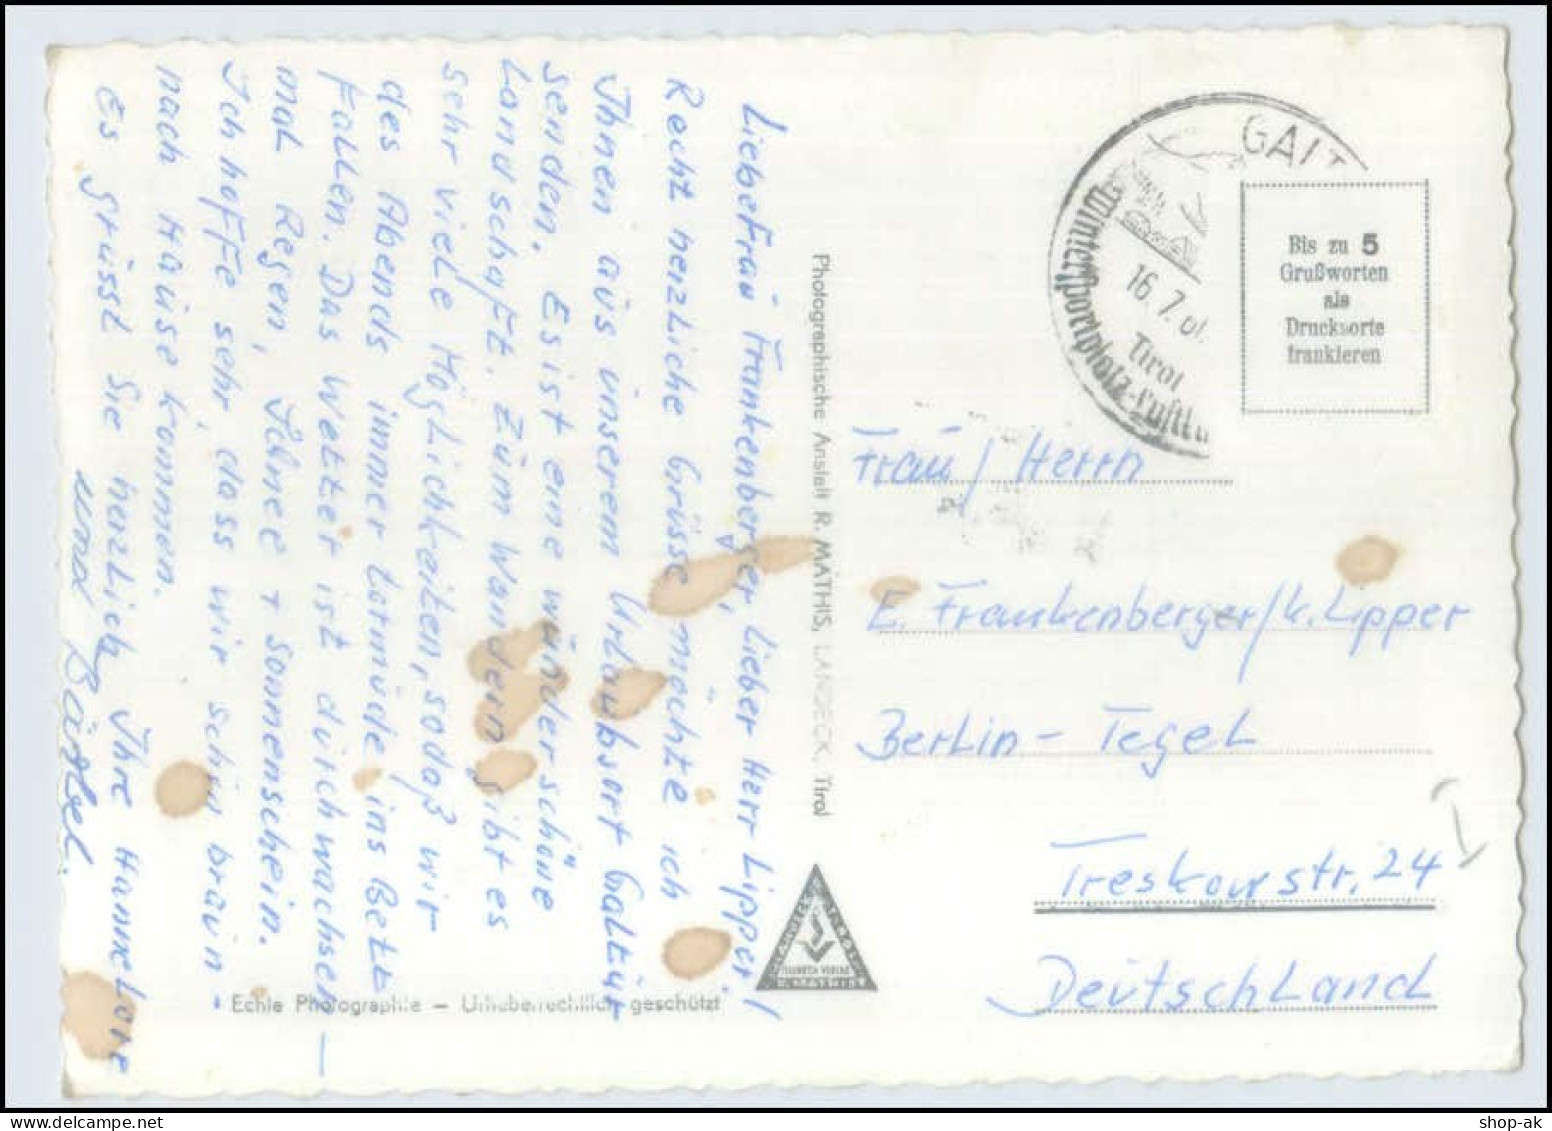 Liebe Frau Frankenberger, Lieber Herr Lipper!
Recht herzliche Grüsse möchte ich
Ihnen aus unserem Urlaubsort Galtür
senden. Es ist eine wunderschöne
Landschaft. Zum Wandern gibt es
sehr viele Möglichkeiten, sodaß wir
des Abends immer totmüde ins Bett
fallen. Das Wetter ist durchwachsen –
mal Regen, Schnee + Sonnenschein.
Ich hoffe sehr, dass wir schön braun
nach Hause kommen.
Es grüsst Sie herzlich Ihre Hannelore
und Bärbel.
Photographische Anstalt R. MATHIS, LANDECK, Tirol
Echte Photographie – Urheberrechtlich geschützt
TIROL
R. MATHIS
GALT
Wintersportplatz-Luftku
16.7.6
Tirol
Bis zu 5
Grußworten
als
Drucksorte
frankieren
Frau / Herrn
E. Frankenberger/k. Lipper
Berlin – Tegel
Treskowstr. 24
Deutschland
shop-ak